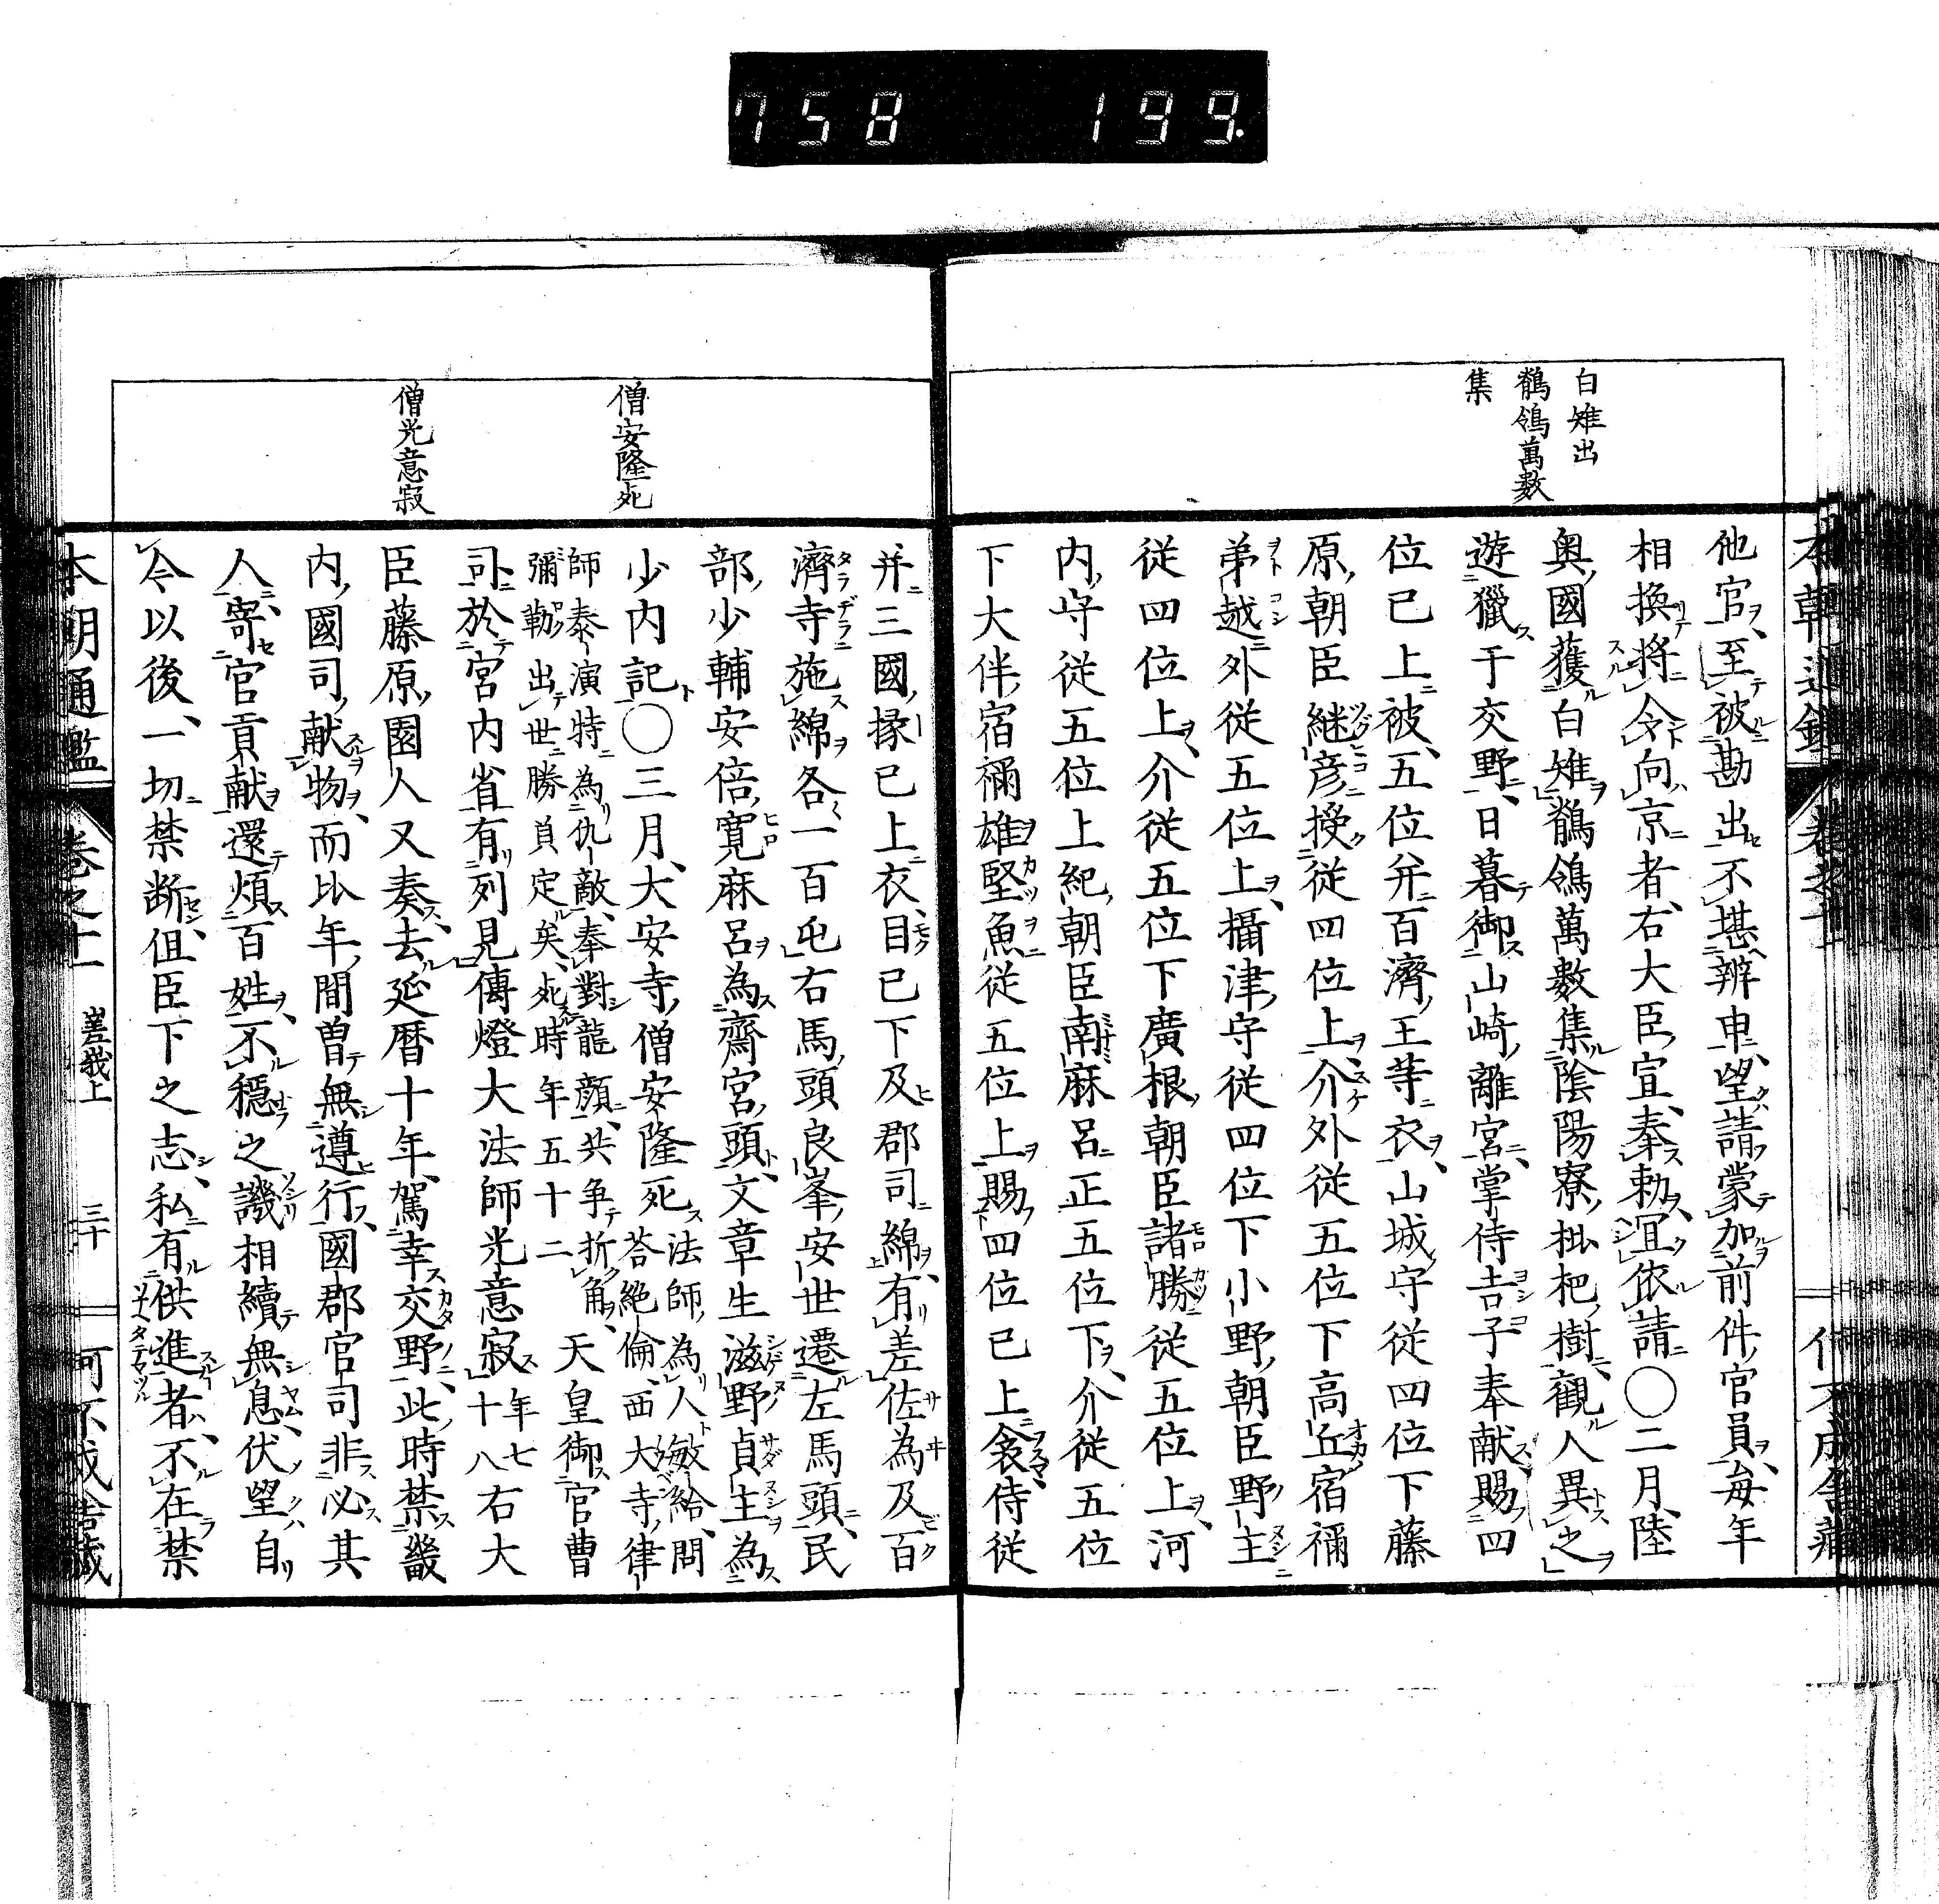 758 199.
白雉出
鶺鴒萬數
集
他官至被勘出不堪辨申望請蒙加前件官員毎年
相換將令向京者右大臣宣奉勅冝依請〇二月陸
奥國獲白雉鶺鴒萬數集陰陽寮枇杷樹觀人異之
遊獵于交野日暮御山崎離宮掌侍吉子奉献賜四
位已上被五位并百濟王等衣山城守従四位下藤
原朝臣継彦授従四位上介外従五位下高丘宿祢
弟越外従五位上攝津守従四位下小野朝臣野主
従四位上介従五位下廣根朝臣諸勝従五位上河
内守従五位上紀朝臣南麻呂正五位下介従五位
下大伴宿禰雄堅魚従五位上賜四位已上衾侍従
并三國掾已上衣目已下及郡司綿有差佐為及百
濟寺施綿各一百屯右馬頭良峯安世遷左馬頭民
部少輔安倍寛麻呂為齋宮頭文章生滋野貞主為
僧安隆死
少内記〇三月大安寺僧安隆死法師為人敏給問荅絶倫西大寺律
師泰演特為仇敵奉對龍顔共争折角
彌勒出世勝負定矣死時年五十二
天皇御官曹
司於宮内省有列見傳燈大法師光意寂年七十八右大
僧光意寂
臣藤原園人又奏去延暦十年駕幸交野此時禁畿
内國司献物而比年間曽無遵行國郡官司非必其
人寄官貢献還煩百姓不穏之譏相續無息伏望自
今以後一切禁断但臣下之志私有供進者不在禁
本朝通鑑 卷之十 嵯峨上 三十